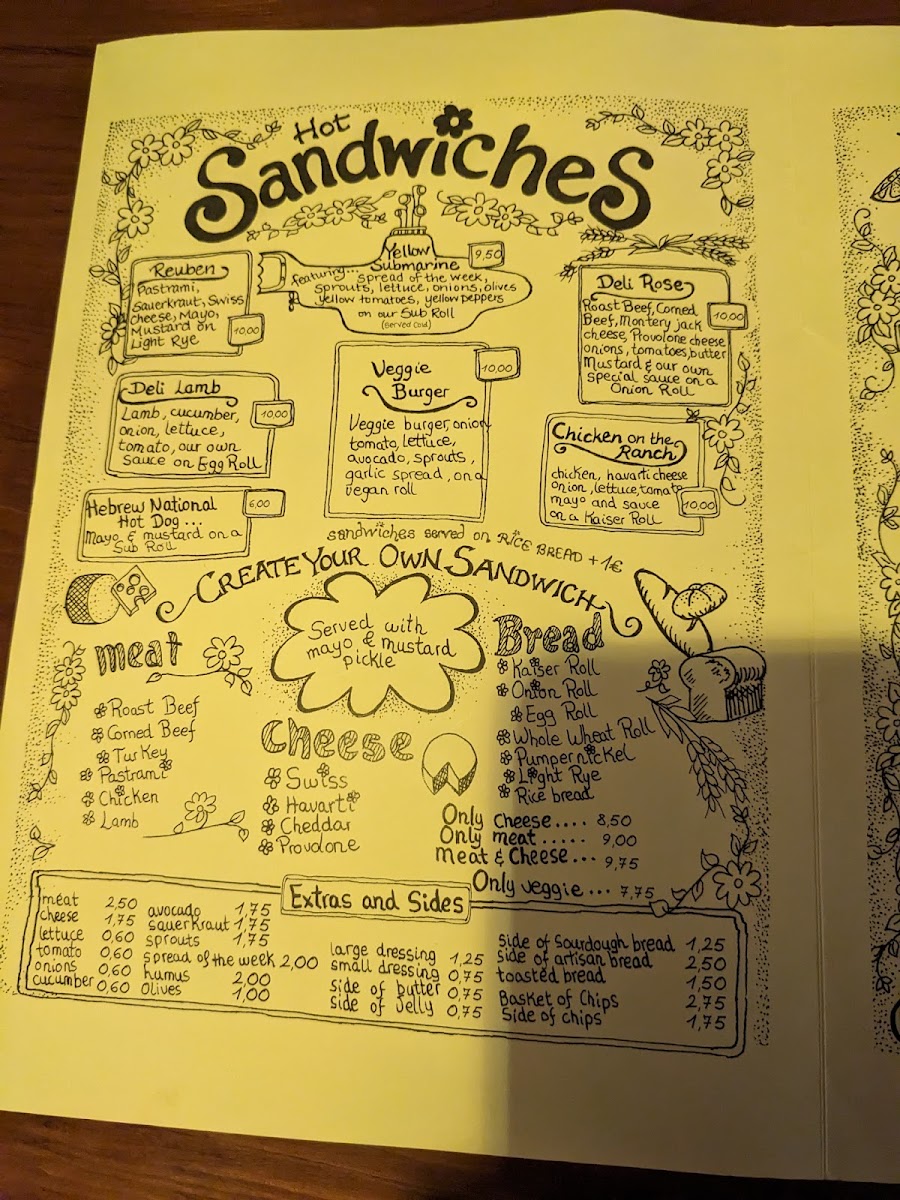 Hot
Sandwiches
Reuben
Pastrami,
Sauerkraut, Swiss
cheese, Mayo,
Mustard on
Light Rye
10,00
Yellow
Submarine
9,50
featuring...
spread of the week,
sprouts, lettuce, onions, olives
yellow tomatoes, yellow peppers
on our Sub Roll
(Served Cold)
Deli Rose
Roast Beef, Corned
Beef, Montery Jack
cheese, Provolone cheese
onions, tomatoes, butter
Mustard & our own
special sauce on a
Onion Roll
10,00
Deli Lamb
Lamb, cucumber,
onion, lettuce,
tomato, our own
sauce on Egg Roll
10,00
Veggie
Burger
10,00
Veggie burger, onion
tomato, lettuce,
avocado, sprouts,
garlic spread, on a
vegan roll
Chicken on the
Ranch
chicken, havarti cheese
onion, lettuce, tomato
mayo and sauce
on a Kaiser Roll
10,00
Hebrew National
Hot Dog ...
Mayo & mustard on a
Sub Roll
6,00
sandwiches served on RICE BREAD +1€
CREATE YOUR OWN SANDWICH
Served with
mayo & mustard
pickle
meat
Roast Beef
Corned Beef
Turkey
Pastrami
Chicken
Lamb
Cheese
Swiss
Havarti
Cheddar
Provolone
Bread
Kaiser Roll
Onion Roll
Egg Roll
Whole Wheat Roll
Pumpernickel
Light Rye
Rice bread
Only Cheese.... 8,50
Only meat ..... 9,00
Meat & Cheese... 9,75
Only veggie... 7,75
Extras and Sides
meat 2,50
cheese 1,75
lettuce 0,60
tomato 0,60
onions 0,60
cucumber 0,60
avocado 1,75
sauerkraut 1,75
sprouts 1,75
spread of the week 2,00
humus 2,00
Olives 1,00
large dressing 1,25
small dressing 0,75
side of butter 0,75
side of Jelly 0,75
side of Sourdough bread 1,25
side of artisan bread 2,50
toasted bread 1,50
Basket of Chips 2,75
Side of chips 1,75